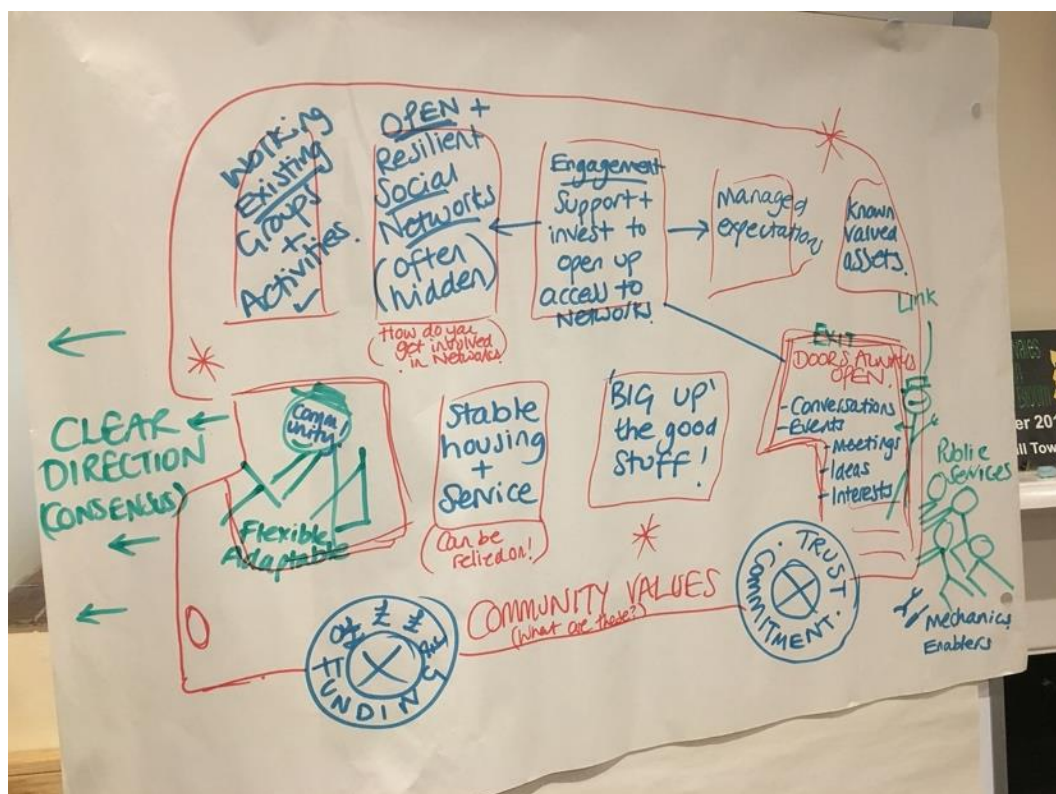 Working
Existing
Groups
+
Activities.
OPEN +
Resilient
Social
Networks
(often
hidden)
(How do you
get involved
in Networks?)
Engagement
Support +
invest to
open up
access to
Network.
managed
expectations
Known
valued
assets.
Link
EXIT
DOORS ALWAYS
OPEN.
- Conversations
- Events
- Meetings
- Ideas
- Interests
CLEAR
DIRECTION
(CONSENSUS)
Comm
unity
Flexible
Adaptable
Stable
housing
+
Service
(Can be
relied on!)
'BIG UP'
the good
stuff!
Public
Services
Mechanics
Enablers
COMMUNITY VALUES
(What are these?)
£ £
FUNDING
TRUST
COMMITMENT
er 20
ll Tow